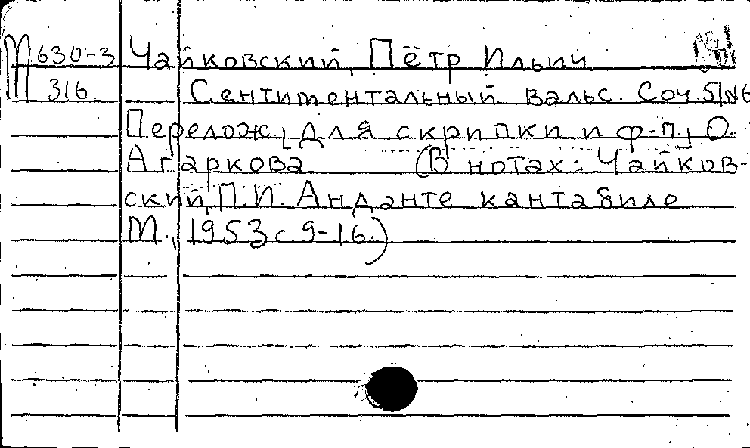 М630-3 Чайковский, Пётр Ильич
316 Сентиментальный вальс. Соч. 51 №6
Перелож. для скрипки и ф-п. О.
Агаркова (В нотах: Чайков-
ский, П.И. Анданте кантабиле
М., 1953 с 9-16.)